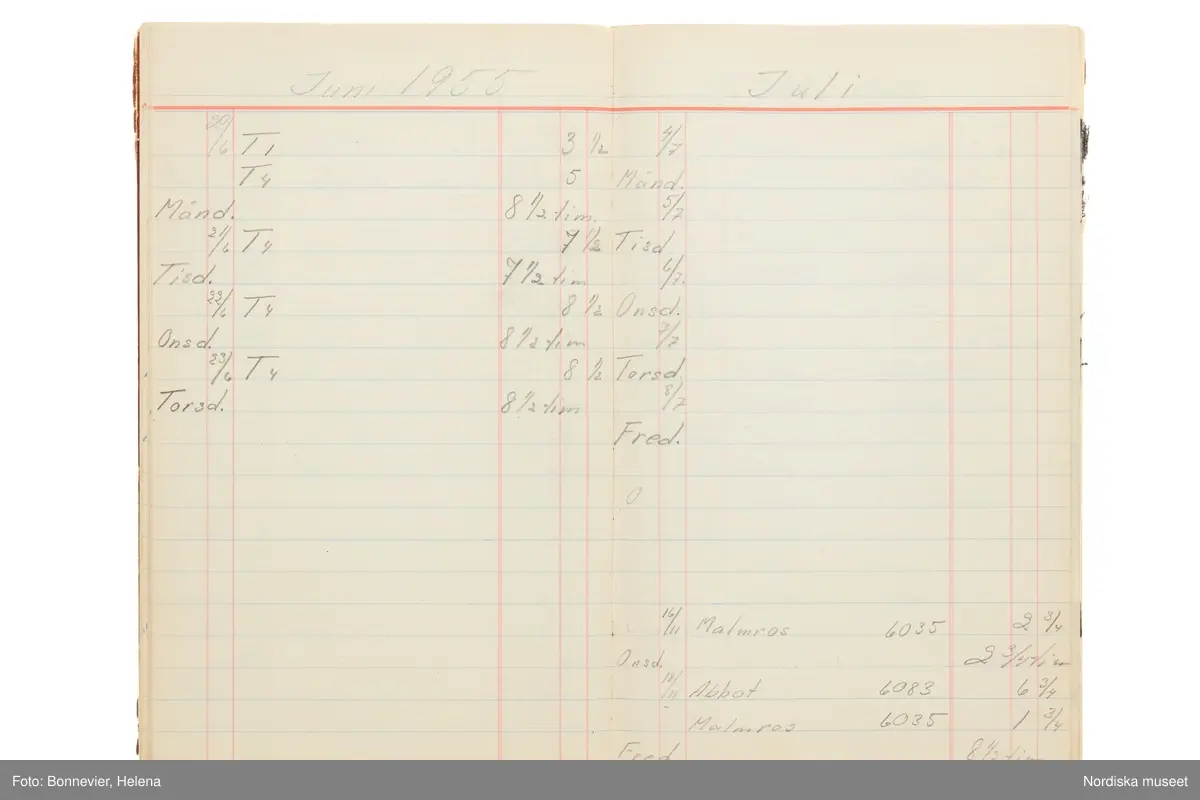 Juni 1955
20/6 T1 3 1/2
T4 5
Månd. 8 1/2 tim.
21/6 T4 7 1/2
Tisd. 7 1/2 tim
22/6 T4 8 1/2
Onsd. 8 1/2 tim
23/6 T4 8 1/2
Torsd. 8 1/2 tim
Juli
4/7
Månd.
5/7
Tisd
6/7
Onsd.
7/7
Torsd.
8/7
Fred.
0
16/11 Malmros 6035 2 3/4
Onsd. 2 3/4 tim
18/11 Abbot 6083 6 3/4
Malmros 6035 1 3/4
Fred 8 1/2 tim
Foto: Bonnevier, Helena
Nordiska museet